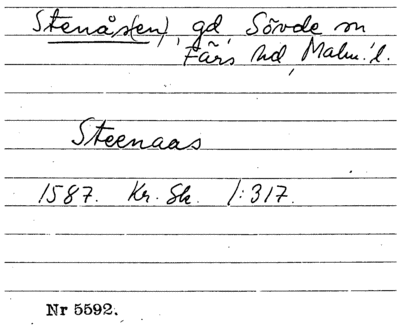 Stenås(en), gd, Sövde sn
Färs hd, Malm. l.
Steenaas
1587. Kr. Sk. 1:317.
Nr 5592.